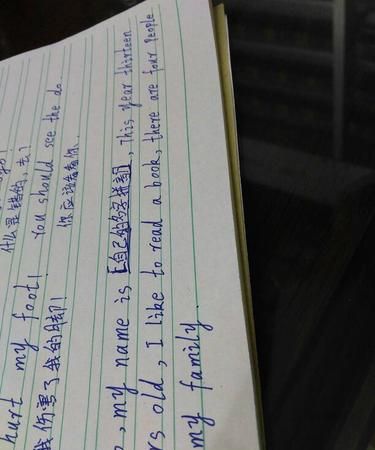 什么是错的，去？
hurt my foot! You should see the do.
我伤害了我的脚！ 你应该看看你.
, my name is [自己的名字拼音], This year thirteen
rs old, I like to read a book, there are four people
my family.